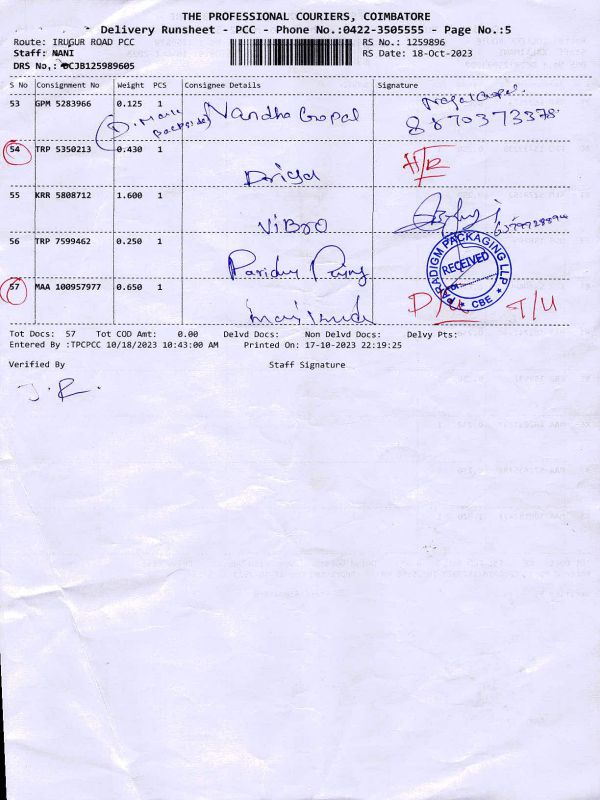 THE PROFESSIONAL COURIERS, COIMBATORE
Delivery Runsheet - PCC - Phone No.:0422-3505555 - Page No.:5
Route: IRUGUR ROAD PCC RS No.: 1259896
Staff: NANI RS Date: 18-Oct-2023
DRS No.: DCJB125989605
S No Consignment No Weight PCS Consignee Details Signature
53 GPM 5283966 0.125 1 Nandha Gopal
8870373378
54 TRP 5350213 0.430 1
55 KRR 5808712 1.600 1 ViBro
56 TRP 7599462 0.250 1
PARADIGM PACKAGING LLP
RECEIVED
* CBE *
57 MAA 100957977 0.650 1 T/U
Tot Docs: 57 Tot COD Amt: 0.00 Delvd Docs: Non Delvd Docs: Delvy Pts:
Entered By :TPCPCC 10/18/2023 10:43:00 AM Printed On: 17-10-2023 22:19:25
Verified By Staff Signature
J. R.